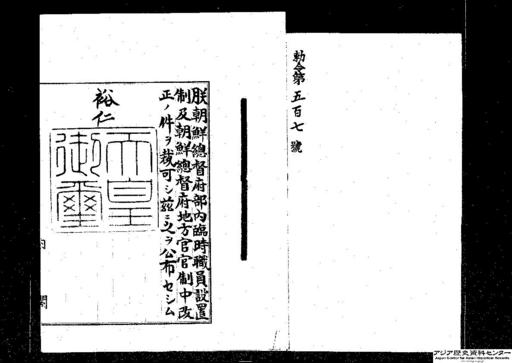 勅令第五百七號
朕朝鮮總督府部內臨時職員設置
制及朝鮮總督府地方官官制中改
正ノ件ヲ裁可シ玆ニ之ヲ公布セシム
裕仁
天皇
御璽
内
閣
アジア歴史資料センター
Japan Center for Asian Historical Records